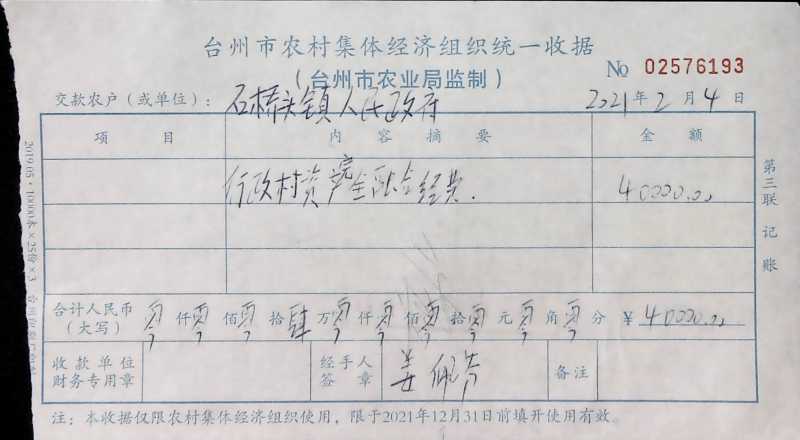 台州市农村集体经济组织统一收据
（台州市农业局监制）
No 02576193
交款农户（或单位）： 石桥头镇人民政府 2021年2月4日
项 目 内 容 摘 要 金 额
行政村资产融合经费. 40000.00
合计人民币（大写） 零仟零佰零拾肆万零仟零佰零拾零元零角零分 ￥40000.00
收款单位财务专用章 经手人签章 姜 备注
注：本收据仅限农村集体经济组织使用，限于2021年12月31日前填开使用有效。
第三联 记账
2019.05·10000本×25份×3